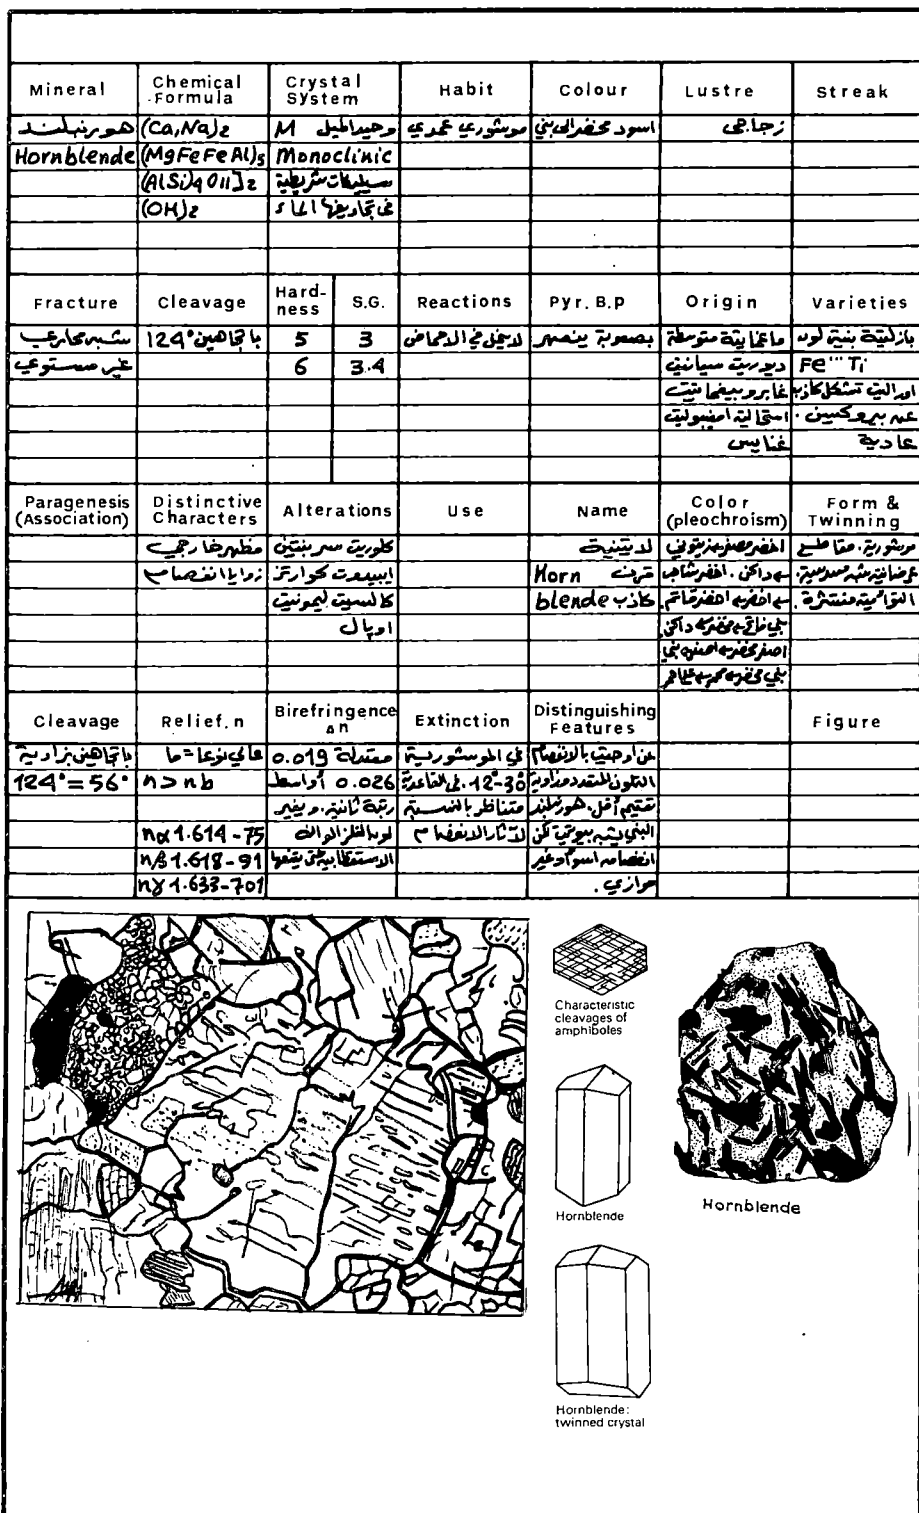 Mineral Chemical Formula Crystal System Habit Colour Lustre Streak
هورنبلند (Ca,Na)2 وحيد الميل M موشوري عمدي اسود مخضر الى بني زجاجي
Hornblende (MgFeFeAl)5 Monoclinic
(AlSi)4O11]2 سيليكات شريطية
(OH)2 في تجاويفها الماء
Fracture Cleavage Hard-ness S.G. Reactions Pyr. B.p Origin Varieties
شبه محاري باتجاهين 124° 5 3 لاينحل في الاحماض بصعوبة ينصهر ماغماتية متوسطة بازلتية بنية لون
غير مستوي 6 3.4 ديوريت سيانيت Fe''' Ti
غابرو بيغماتيت اوراليت تشكل كاذب
استحالية امفبوليت عن بيروكسين .
غنايس عادية
Paragenesis (Association) Distinctive Characters Alterations Use Name Color (pleochroism) Form & Twinning
مظهر خارجي كلوريت سربنتين لاتينية اخضر مصفر زيتوني موشورية. مقاطع
زوايا انفصام ايبيدوت كوارتز Horn قرن داكن. اخضر شاحب عرضانية شبه مسدسية.
كالسيت ليمونيت blende كاذب اخضر اخضر قاتم. التوائمية منتشرة.
اوبال بني فاتح مخضر داكن
اصفر مخضر بني
بني مخضر محمر
Cleavage Relief. n Birefringence Δn Extinction Distinguishing Features Figure
باتجاهين بزاوية عالي نوعا=ما معتدلة 0.019 في الموشورية عن اوجيت بالانفصام
124°=56° n > nb 0.026 أواسط 12-30°. في القاعدة التلون المتعدد وزاوية
رتبة ثانية. ويغير متناظر بالنسبة أقل. هورنبلند
nα 1.614-75 لون الفلز لآثار الانفصام البني يشبه بيوتيت لكن
nβ 1.618-91 انفصامه اسوأ وغير
nγ 1.633-701 موازي.
Characteristic
cleavages of
amphiboles
Hornblende
Hornblende
Hornblende:
twinned crystal